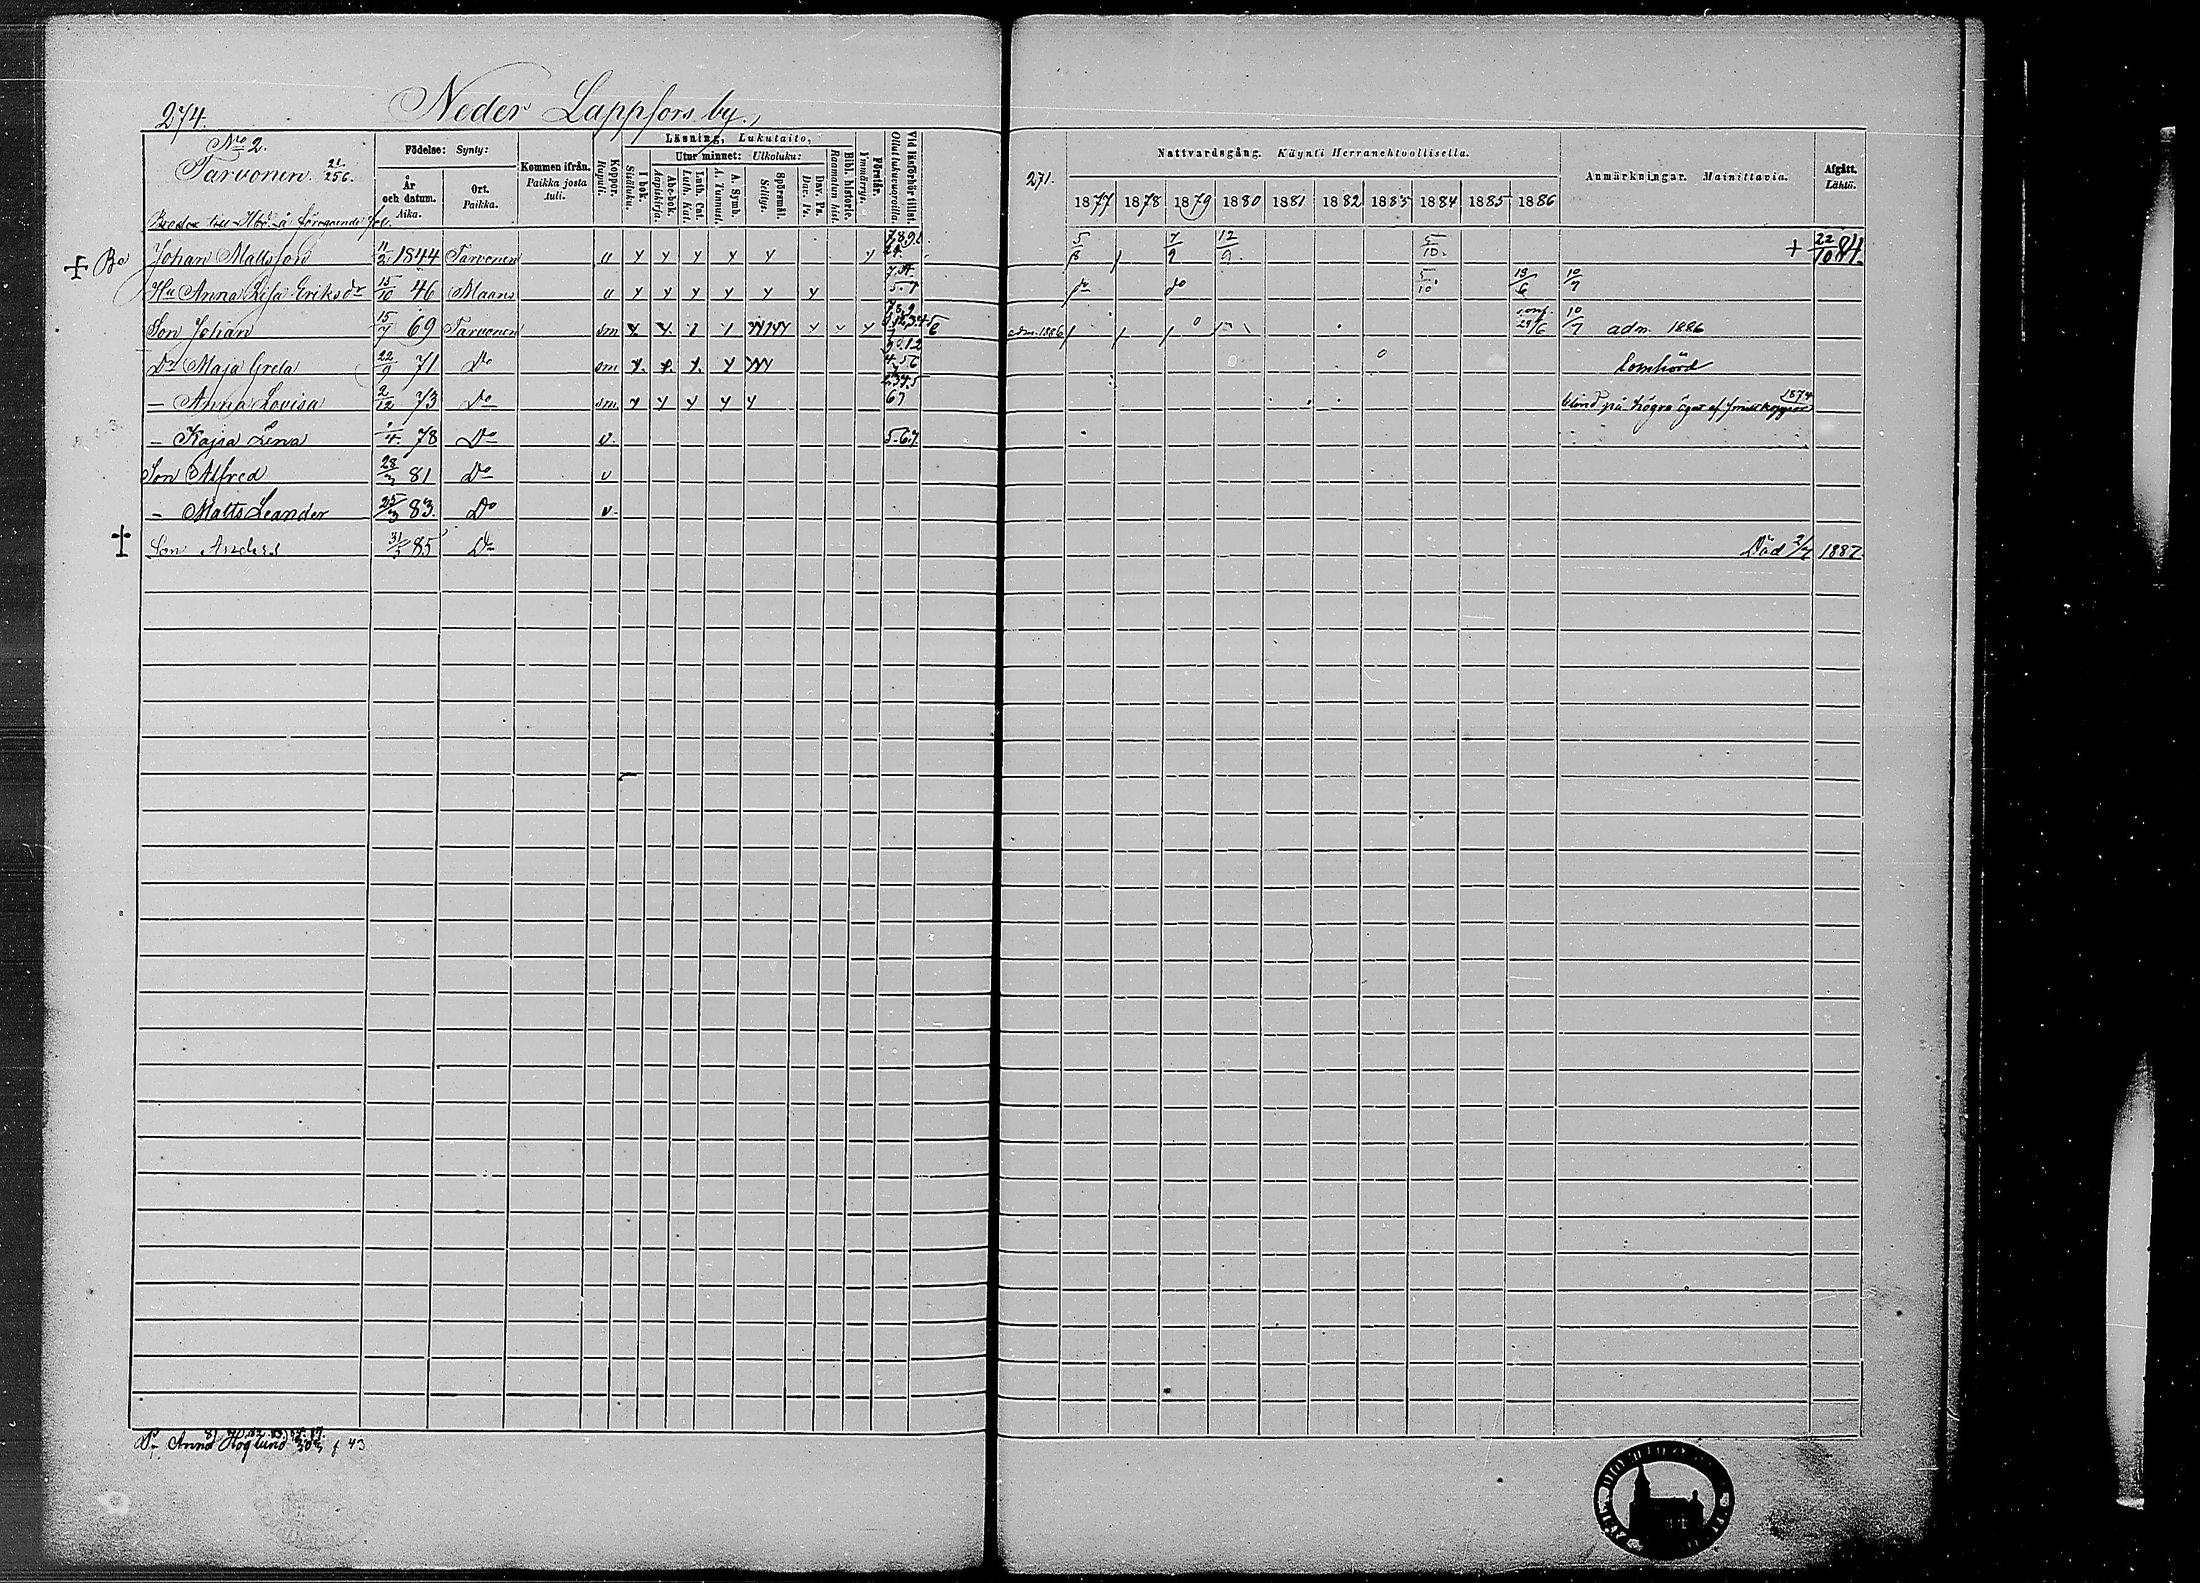 274.
Neder Lappfors by.
Nro 2.
Tarvonen. 21/256.
Födelse: Synty:
År och datum. Aika.
Ort. Paikka.
Kommen ifrån. Paikka josta tuli.
Koppor. Rupuli.
Läsning, Lukutaito,
I bok. Sisäluku.
Utur minnet: Ulkoluku:
Abcbok. Aapiskirja.
Luth. Cat. Luth. Kat.
A. Symb. A. Tunnust.
Spörsmål. Selitys.
Dav. Ps. Dav. Ps.
Bibl. historie. Raamatun hist.
Förstår. Ymmärrys.
Vid läsförhör tillst. Ollut lukukuvauksilla.
271.
Nattvardsgång. Käynti Herranehtoollisella.
1877 1878 1879 1880 1881 1882 1883 1884 1885 1886
Anmärkningar. Mainittavia.
Afgått. Lähtö.
Broder till Hbd. å föregående fol.
Bo Johan Mattsson 11/2 1844 Tarvonen u y y y y y y 5/8 7/9 12/9 5/10. + 22/10 84.
Hu Anna Lisa Eriksdr 15/10 46 Maans u y y y y y y 5.7 do do 5/10 13/6 10/7
Son Johan 15/7 69 Tarvonen sm adm. 1886 conf. 29/6 10/7 adm. 1886
Dr Maja Greta 22/9 71 Do sm 4.56 Lomhörd
- Anna Lovisa 2/12 73 Do sm. y y y y y 2.34.5 67 blind på högra ögat af smittkoppor 1874
- Kajsa Lena 1/4. 78 Do v. 5.6.7
Son Alfred 28/3 81 Do v
- Matts Leander 25/3 83. Do v.
Son Anders 31/3 85 Do Död 2/7 1887.
Pr. Anna Höglund f 43